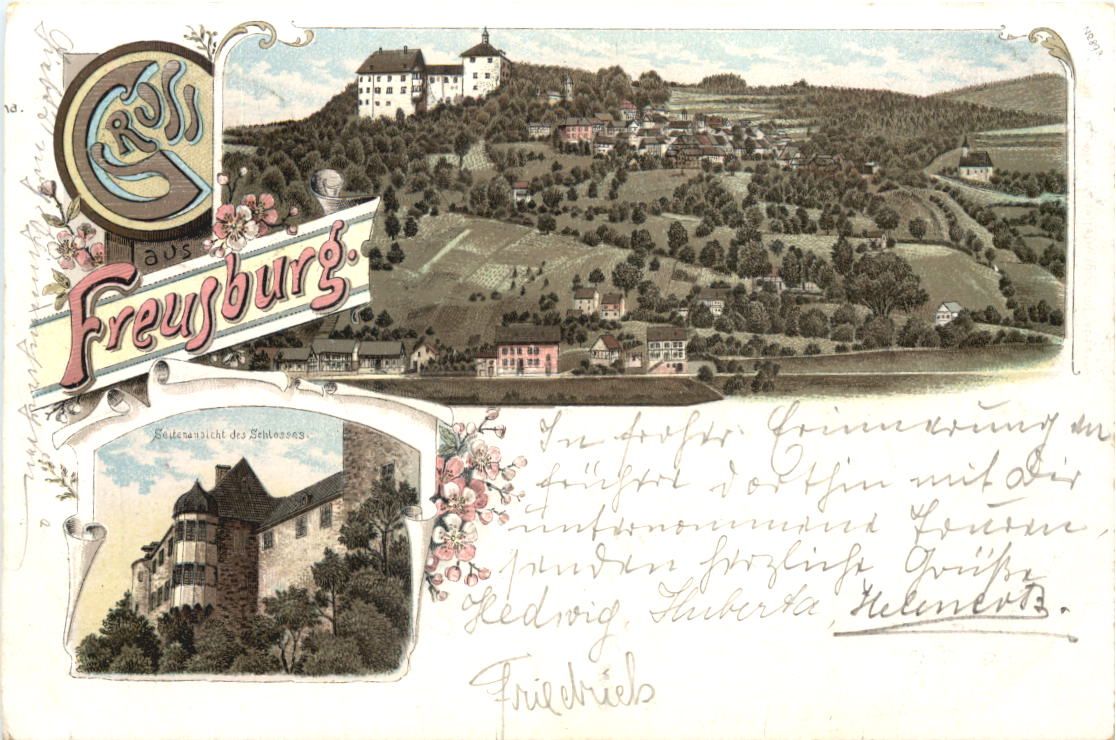 Gruss
aus
Freusburg.
Seitenansicht des Schlosses.
In froher Erinnerung an
früher dorthin mit Dir
unternommene Touren,
senden herzliche Grüße
Hedwig, Huberta,
Friedrich